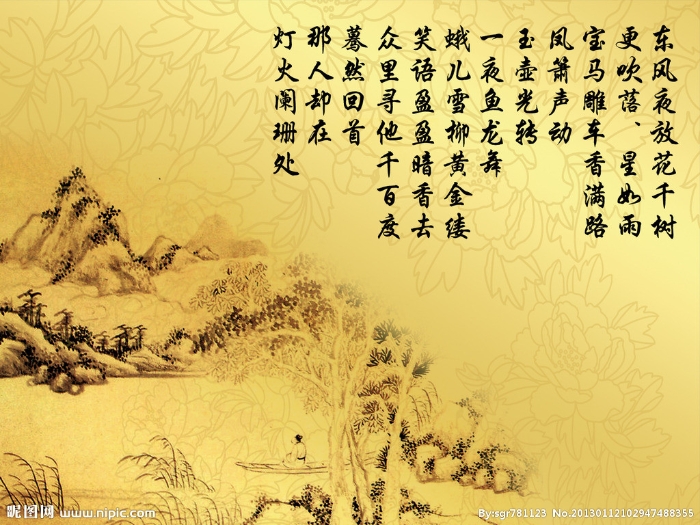 东风夜放花千树
更吹落、星如雨
宝马雕车香满路
凤箫声动
玉壶光转
一夜鱼龙舞
蛾儿雪柳黄金缕
笑语盈盈暗香去
众里寻他千百度
蓦然回首
那人却在
灯火阑珊处
昵图网 www.nipic.com
By:sgr781123 No.20130112102947488355